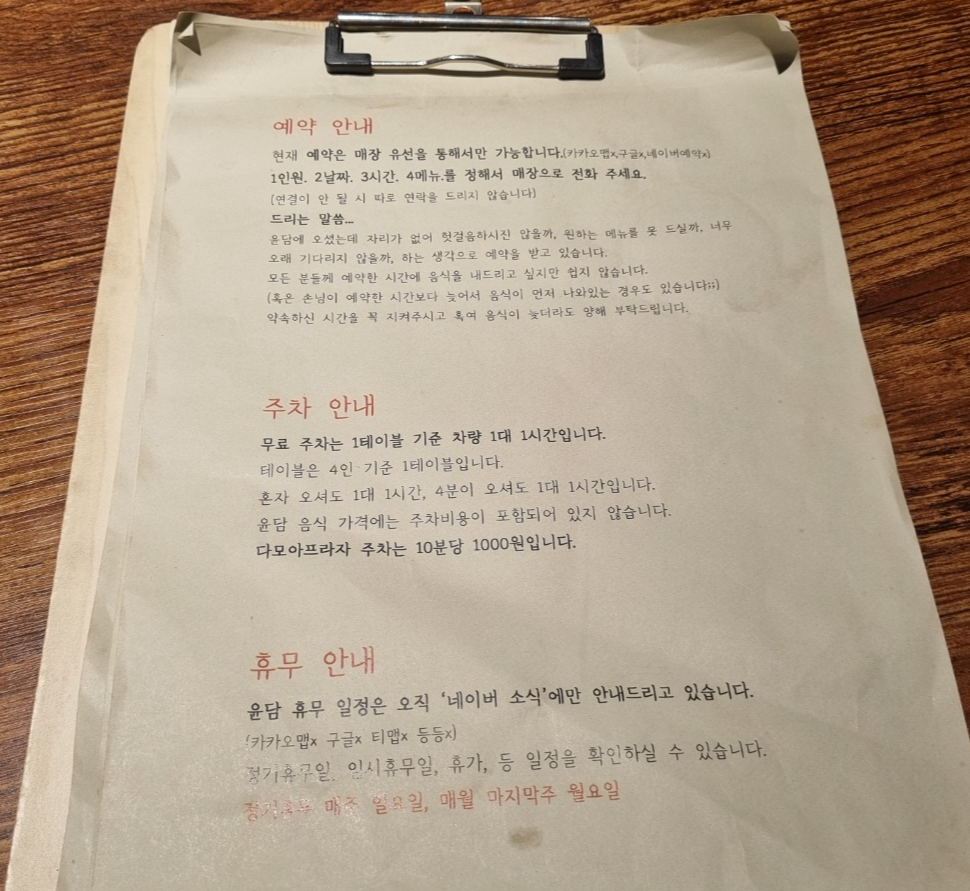 예약 안내
현재 예약은 매장 유선을 통해서만 가능합니다.(카카오맵x,구글x,네이버예약x)
1인원. 2날짜. 3시간. 4메뉴.를 정해서 매장으로 전화 주세요.
(연결이 안 될 시 따로 연락을 드리지 않습니다)
드리는 말씀...
윤담에 오셨는데 자리가 없어 헛걸음하시진 않을까, 원하는 메뉴를 못 드실까, 너무
오래 기다리지 않을까, 하는 생각으로 예약을 받고 있습니다.
모든 분들께 예약한 시간에 음식을 내드리고 싶지만 쉽지 않습니다.
(혹은 손님이 예약한 시간보다 늦어서 음식이 먼저 나와있는 경우도 있습니다;;)
약속하신 시간을 꼭 지켜주시고 혹여 음식이 늦더라도 양해 부탁드립니다.
주차 안내
무료 주차는 1테이블 기준 차량 1대 1시간입니다.
테이블은 4인 기준 1테이블입니다.
혼자 오셔도 1대 1시간, 4분이 오셔도 1대 1시간입니다.
윤담 음식 가격에는 주차비용이 포함되어 있지 않습니다.
다모아프라자 주차는 10분당 1000원입니다.
휴무 안내
윤담 휴무 일정은 오직 '네이버 소식'에만 안내드리고 있습니다.
(카카오맵x 구글x 티맵x 등등x)
정기휴무일. 임시휴무일, 휴가, 등 일정을 확인하실 수 있습니다.
정기휴무 매주 일요일, 매월 마지막주 월요일